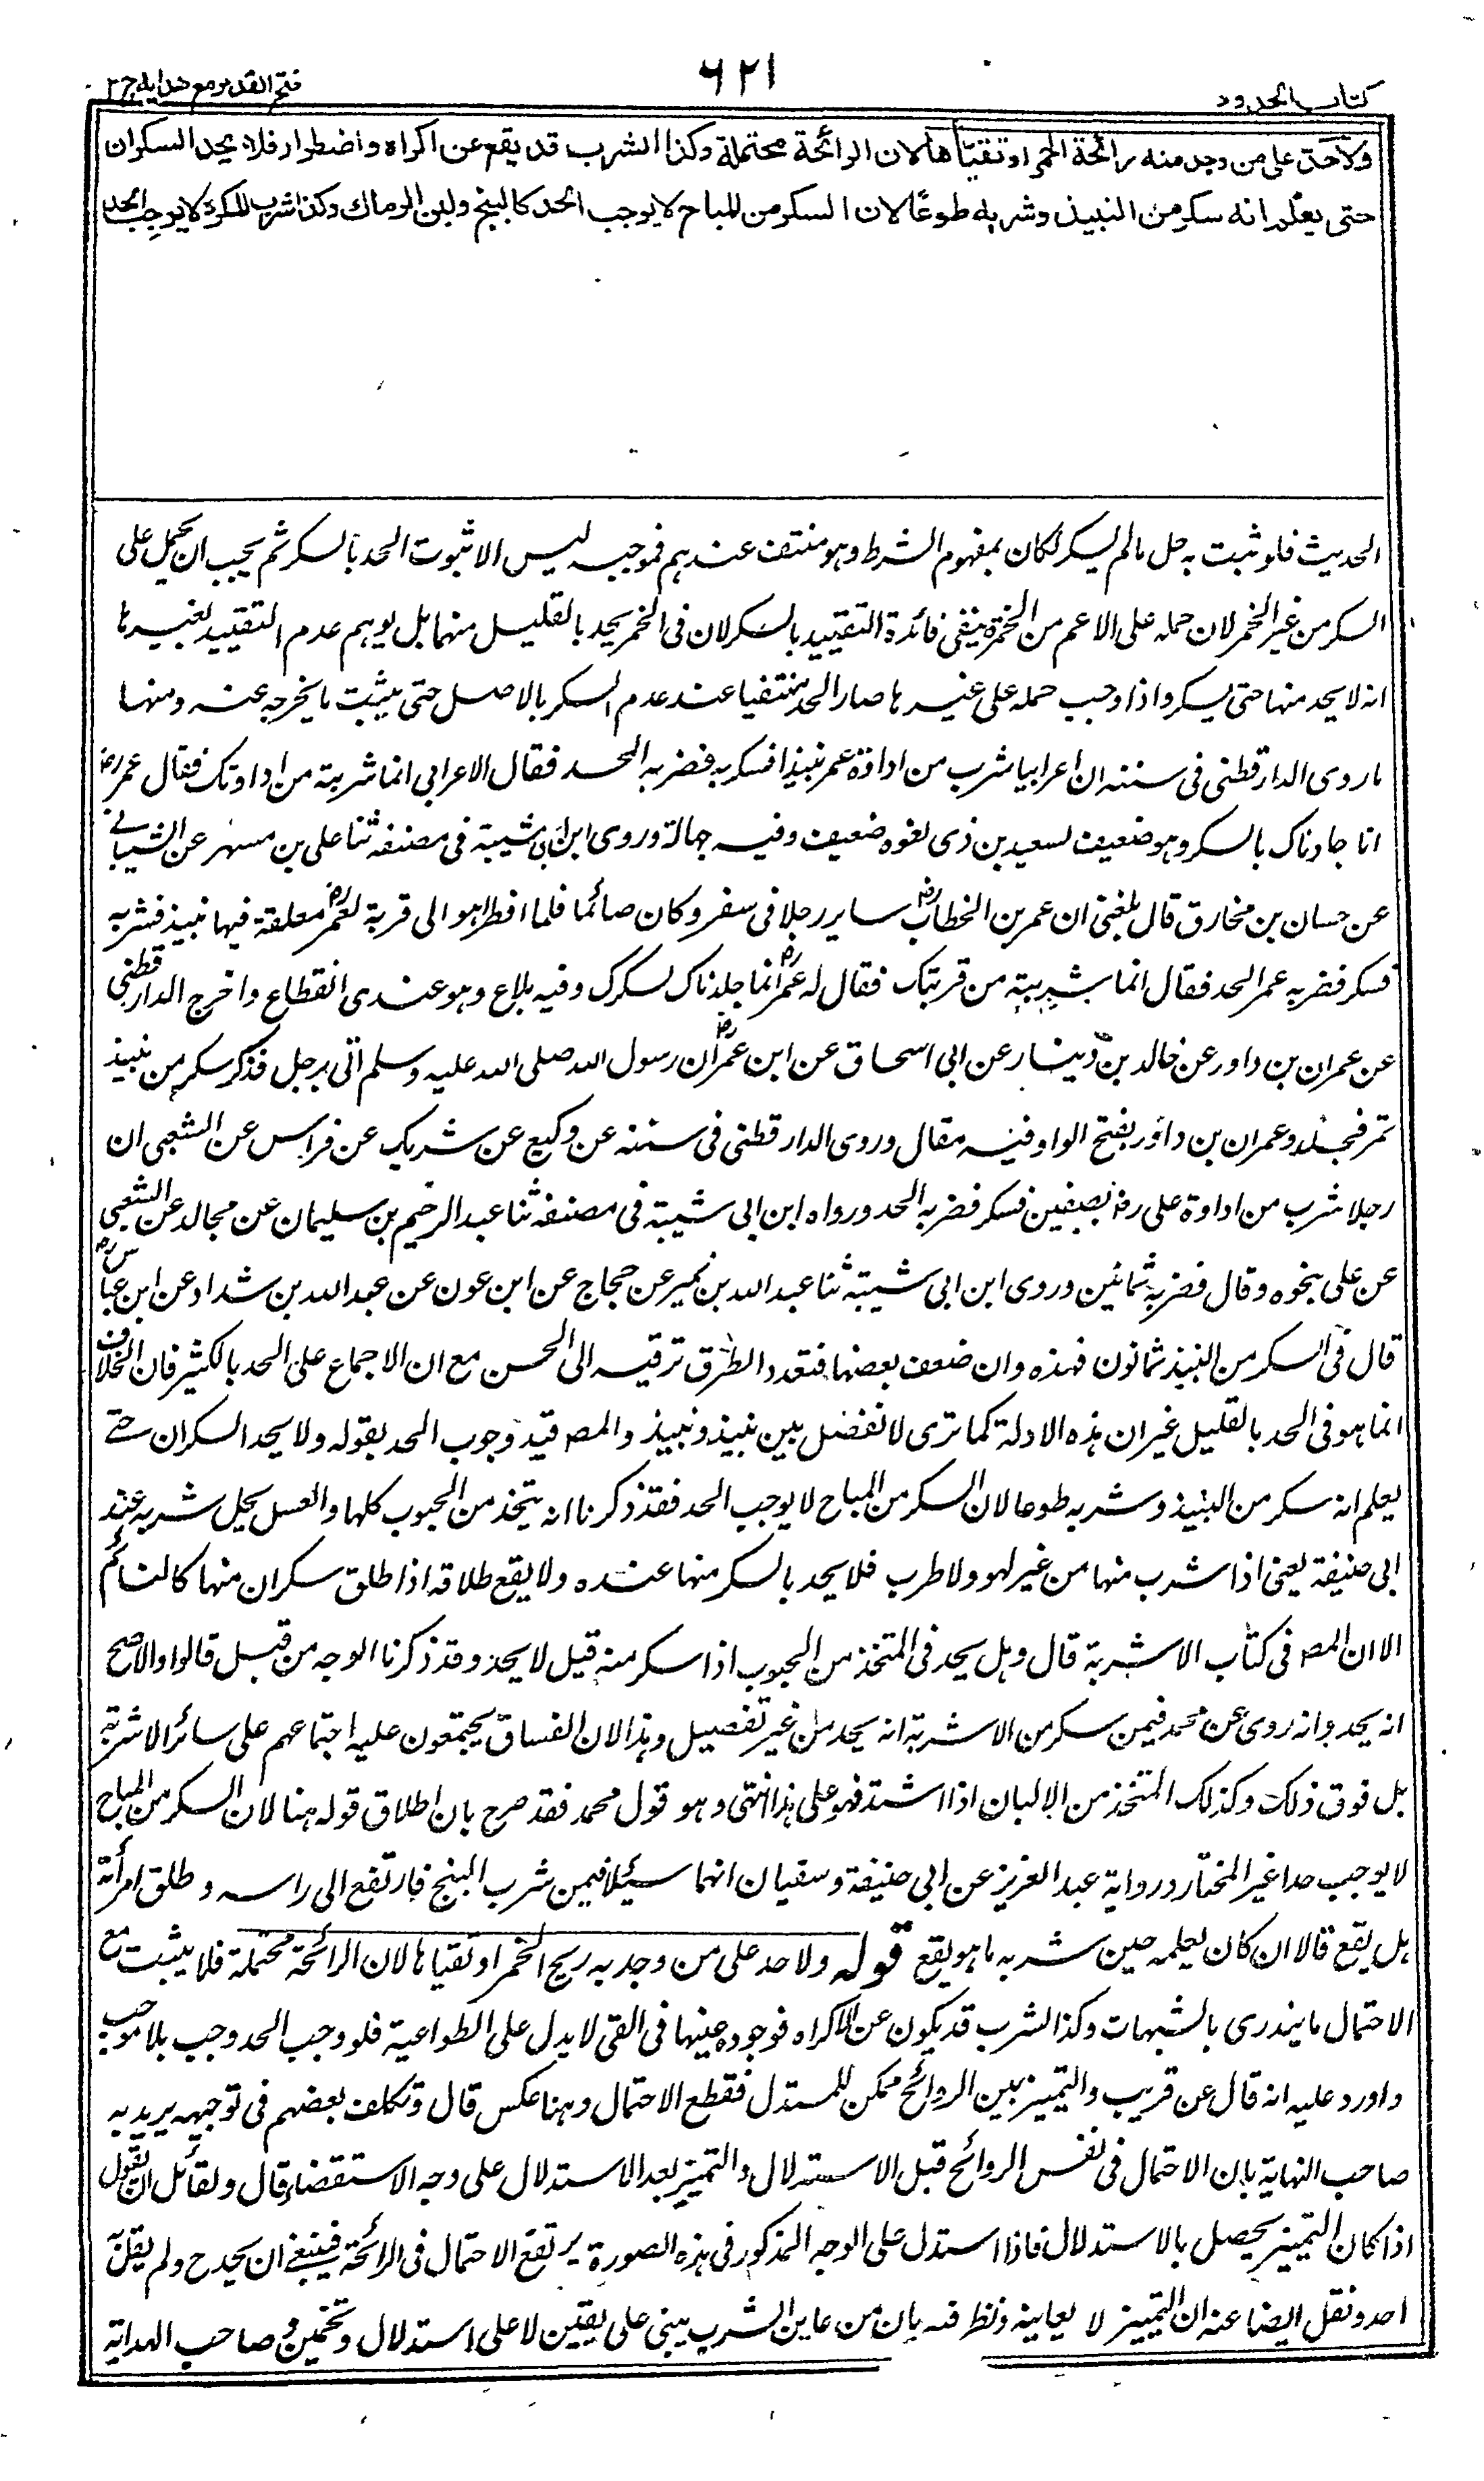 كتاب الحدود
٦٢١
فتح القدير مع هدايه ج ٢
ولا حد على من وجد منه رائحة الخمر او تقيأها لان الرائحة محتملة وكذا الشرب قد يقع عن اكراه واضطرار فلا يحد السكران
حتى يعلم انه سكر من النبيذ وشربه طوعًا لان السكر من المباح لا يوجب الحد كالبنج ولبن الرماك وكذا شرب المكره لا يوجب الحد
الحديث فلو ثبت به حل ما لم يسكر لكان بمفهوم الشرط وهو منتف عندهم فموجبه ليس الا ثبوت الحد بالسكر ثم يجب ان يحمل على
السكر من غير الخمر لان حمله على الاعم من الخمرة ينفى فائدة التقييد بالسكر لان فى الخمر يحد بالقليل منها بل يوهم عدم التقييد بغيرها
انه لا يحد منها حتى يسكر واذا وجب حمله على غيرها صار الحد منتفيا عند عدم السكر بالاصل حتى يثبت ما يخرجه عنه ومنها
ما روى الدارقطنى فى سننه ان اعرابيا شرب من اداوة عمر نبيذا فسكر به فضربه الحد فقال الاعرابى انما شربته من اداوتك فقال عمر رض
انا جلدناك بالسكر وهو ضعيف لسعيد بن ذى لغوه ضعيف وفيه جهالة وروى ابن ابى شيبة فى مصنفه ثنا على بن مسهر عن الشيبانى
عن حسان بن مخارق قال بلغنى ان عمر بن الخطاب رض ساير رجلا فى سفر وكان صائما فلما افطر اهوى الى قربة لعمر رض معلقة فيها نبيذ فشربه
فسكر فضربه عمر الحد فقال انما شربته من قربتك فقال له عمر رض انما جلدناك لسكرك وفيه بلاغ وهو عندى انقطاع واخرج الدارقطنى
عن عمران بن داور عن خالد بن دينار عن ابى اسحاق عن ابن عمر رض ان رسول الله صلى الله عليه وسلم اتى برجل فذكر سكر من نبيذ
تمر فجلده وعمران بن داور بفتح الواو فيه مقال وروى الدارقطنى فى سننه عن وكيع عن شريك عن فراس عن الشعبى ان
رجلا شرب من اداوة على رض بصفين فسكر فضربه الحد ورواه ابن ابى شيبة فى مصنفه ثنا عبد الرحيم بن سليمان عن مجالد عن الشعبى
عن على بنحوه وقال فضربه ثمانين وروى ابن ابى شيبة ثنا عبد الله بن نمير عن حجاج عن ابن عون عن عبد الله بن شداد عن ابن عباس رض
قال فى السكر من النبيذ ثمانون فهذه وان ضعف بعضها فتعدد الطرق ترقيه الى الحسن مع ان الاجماع على الحد بالكثير فان الخلاف
انما هو فى الحد بالقليل غير ان هذه الادلة كما ترى لا تفصل بين نبيذ ونبيذ والمص قيد وجوب الحد بقوله ولا يحد السكران حتى
يعلم انه سكر من النبيذ وشربه طوعا لان السكر من المباح لا يوجب الحد فقد ذكرنا انه يتخذ من الحبوب كلها والعسل يحل شربه عند
ابى حنيفة يعنى اذا شرب منها من غير لهو ولا طرب فلا يحد بالسكر منها عنده ولا يقع طلاقه اذا طلق سكران منها كالنائم
الا ان المص فى كتاب الاشربة قال وهل يحد فى المتخذ من الحبوب اذا سكر منه قيل لا يحد وقد ذكرنا الوجه من قبل قالوا والاصح
انه يحد وانه روى عن محمد فيمن سكر من الاشربة انه يحد من غير تفصيل وهذا لان الفساق يجتمعون عليه اجتماعهم على سائر الاشربة
بل فوق ذلك وكذلك المتخذ من الالبان اذا اشتد فهو على هذا انتهى وهو قول محمد فقد صرح بان اطلاق قوله هنا لان السكر من المباح
لا يوجب حدا غير المختار ورواية عبد العزيز عن ابى حنيفة وسفيان انهما سئلا فيمن شرب البنج فارتفع الى راسه وطلق امرأته
هل يقع قالا ان كان يعلمه حين شربه ما هو يقع قوله ولا حد على من وجد به ريح الخمر او تقياها لان الرائحة محتملة فلا يثبت مع
الاحتمال ما يندرى بالشبهات وكذا الشرب قد يكون عن الاكراه فوجود عينها فى القى لا يدل على الطواعية فلو وجب الحد وجب بلا موجب
واورد عليه انه قال عن قريب والتمييز بين الروائح ممكن للمستدل فقطع الاحتمال وهنا عكس قال وتكلف بعضهم فى توجيهه يريد به
صاحب النهاية بان الاحتمال فى نفس الروائح قبل الاستدلال والتمييز بعد الاستدلال على وجه الاستقضاء قال ولقائل ان يقول
اذا كان التمييز يحصل بالاستدلال فاذا استدل على الوجه المذكور فى هذه الصورة يرتفع الاحتمال فى الرائحة فينبغى ان يحد ح ولم يقل به
احد ونقل ايضا عنه ان التمييز لا يعاينه ونظر فيه بان من عاين الشرب يبنى على يقين لا على استدلال وتخمين و صاحب الهداية